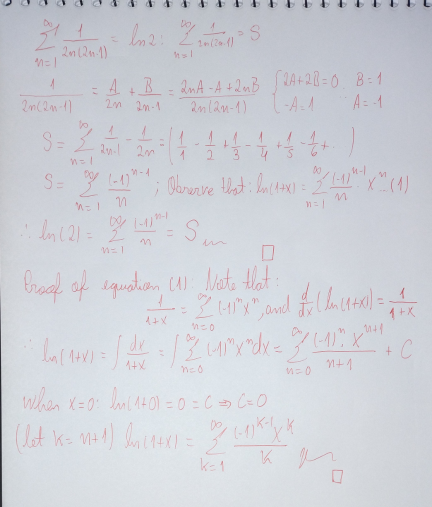 ∞∑n=1 1/(2n(2n-1)) = ln2: ∞∑n=1 1/(2n(2n-1)) = S
1/(2n(2n-1)) = A/2n + B/(2n-1) = (2nA - A + 2nB)/(2n(2n-1)) { 2A+2B=0 B=1
-A=1 A=-1
S = ∞∑n=1 1/(2n-1) - 1/2n = (1/1 - 1/2 + 1/3 - 1/4 + 1/5 - 1/6 + ...)
S = ∞∑n=1 (-1)^(n-1)/n ; Observe that: ln(1+x) = ∞∑n=1 (-1)^(n-1)/n · x^n - (1)
∴ ln(2) = ∞∑n=1 (-1)^(n-1)/n = S
□
Proof of equation (1): Note that:
1/(1+x) = ∞∑n=0 (-1)^n x^n, and d/dx (ln(1+x)) = 1/(1+x)
∴ ln(1+x) = ∫ dx/(1+x) = ∫ ∞∑n=0 (-1)^n x^n dx = ∞∑n=0 (-1)^n · x^(n+1)/(n+1) + C
When x=0: ln(1+0) = 0 = C ⇒ C=0
(let k = n+1) ln(1+x) = ∞∑k=1 (-1)^(k-1) x^k/k
□